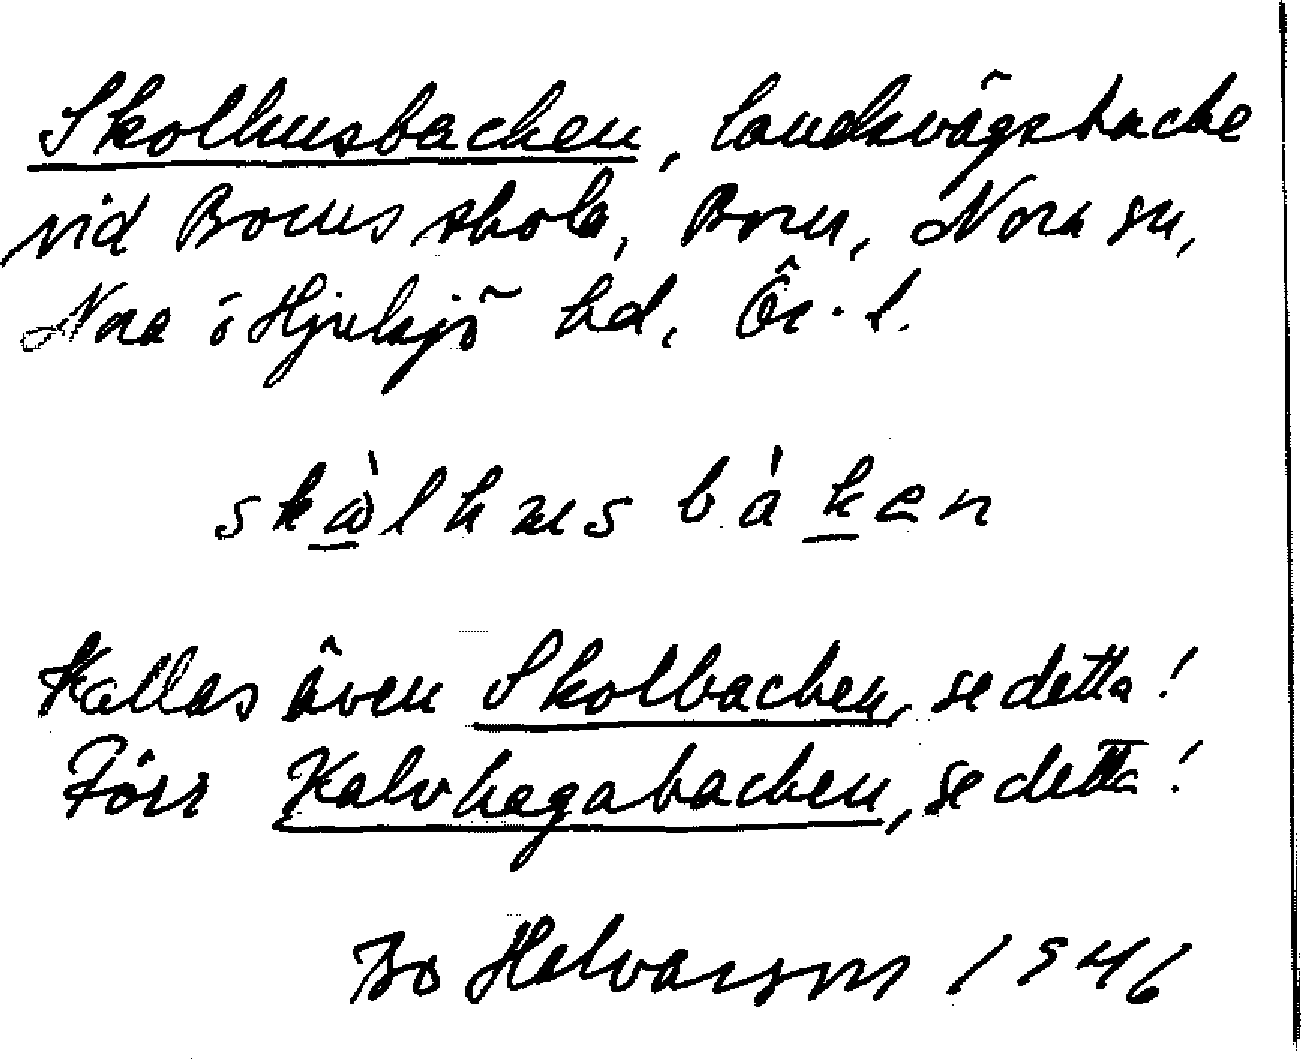 Skolhusbacken, landsvägsbacke
vid Borns skola, Born, Nora sn,
Nora o Hjulsjö hd, Ör. l.
skòlhusbàken
Kallas även Skolbacken, se detta!
Förr Kalvhagabacken, se detta!
Bo Halvarson 1946